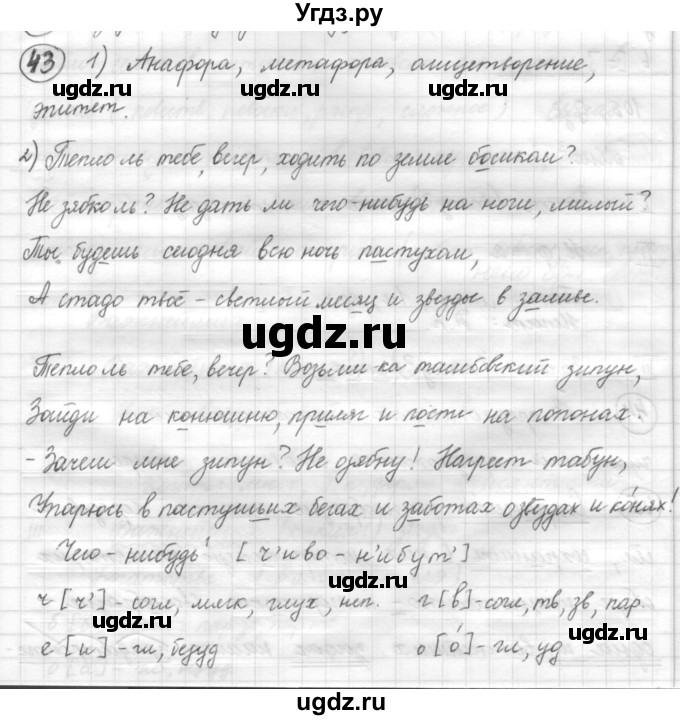 Угдз.ру
43 1) Анафора, метафора, олицетворение,
эпитет.
2) Тепло ль тебе, вечер, ходить по земле босиком?
Не зябко ль? Не дать ли чего-нибудь на ноги, милый?
Ты будешь сегодня всю ночь пастухом,
А стадо твоё - светлый месяц и звезды в заливе.
Тепло ль тебе, вечер? Возьми-ка тамбовский зипун,
Зайди на конюшню, приляг и поспи на попонах.
- Зачем мне зипун? Не озябну! Нагреет табун,
Упарюсь в пастушьих бегах и заботах о звёздах и конях!
Чего-нибудь [ч'иво-н'ибут']
ч [ч'] - согл, мягк, глух, неп. г [в] - согл, тв, зв, пар.
е [и] - гл, безуд о [о] - гл, уд
ugdz.ru
ugdz.ru
ugdz.ru
ugdz.ru
ugdz.ru
ugdz.ru
ugdz.ru
ugdz.ru
ugdz.ru
ugdz.ru
ugdz.ru
ugdz.ru
ugdz.ru
ugdz.ru